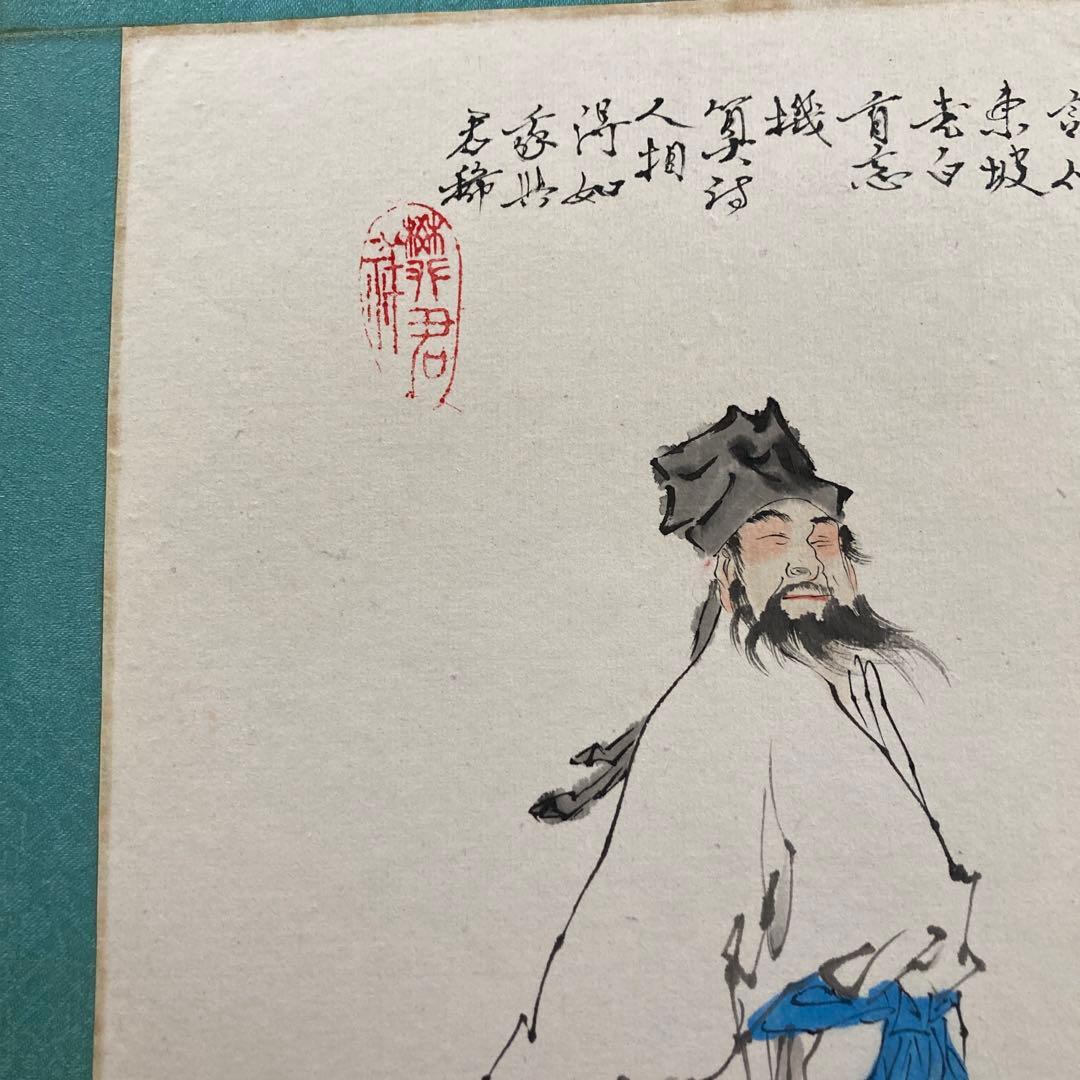 東坡
老白
首忘
機
算詩
人相
得如
我與
君稀